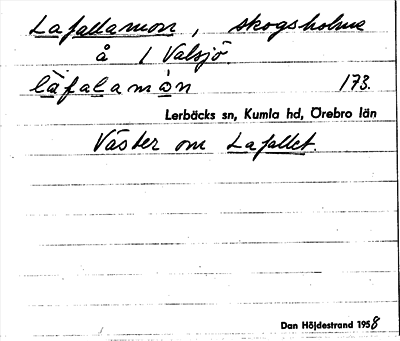 Lafallamon, skogsholme
å 1 Valsjö.
låfalamån 173.
Lerbäcks sn, Kumla hd, Örebro län
Väster om Lafallet.
Dan Höjdestrand 1958